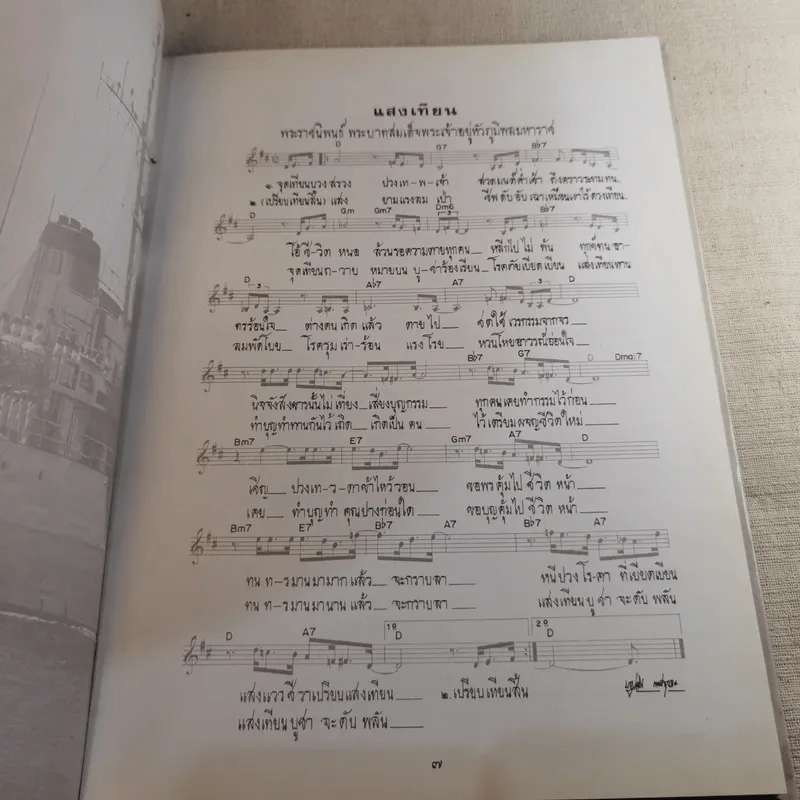 แสงเทียน
พระราชนิพนธ์ พระบาทสมเด็จพระเจ้าอยู่หัวภูมิพลมหาราช
D G7 B♭7
๑. จุดเทียนบวงสรวง ปวงเทพ-เจ้า สวดมนต์ค่ำเช้า ถึงคราวระทมทน
๒. (เปรียบเทียนสิ้น) แสง ยามแรงลม เป่า ชีพดับอับเฉาเหมือนเงาไร้ดวงเทียน
D Gm Gm7 Dm6 B♭7
โอ้ชี-วิต หนอ ล้วนรอความตายทุกคน หลีกไปไม่ พ้น ทุกข์ทน อา-
จุดเทียนถ-วาย หมายบน บู-ชาร้องเรียน โรคภัยเบียดเบียน แสงเทียนทาน
D A♭7 A7 D
ทรร้อนใจ ต่างคนเกิด แล้ว ตายไป ชดใช้ เวรกรรมจากจร
ลมพัดโบย โรครุมเร่า-ร้อน แรงโรย หวนโหยอาวรณ์อ่อนใจ
B♭7 G7 D Dmaj7
นิจจังสังขารนั้นไม่เที่ยง เสี่ยงบุญกรรม ทุกคนเคยทำกรรมไว้ก่อน
ทำบุญทำทานกันไว้เถิด เกิดเป็น คน ไว้เตรียมผจญชีวิตใหม่
Bm7 E7 Gm7 A7 D
เชิญ ปวงเท-ว-ดาข้าไหว้วอน ขอพรคุ้มไป ชีวิต หน้า
เคย ทำบุญทำ คุณปางก่อนใด ขอบุญคุ้มไป ชีวิต หน้า
Bm7 E7 B♭7 A7 B♭7 A7
ทน ท-รมานมามาก แล้ว จะกราบลา หนีปวง โร-คา ที่เบียดเบียน
ทน ท-รมานมานาน แล้ว จะกราบลา แสงเทียนบูชา จะดับ พลัน
D A7 19 D 29 D
แสงแวว ชี วาเปรียบแสงเทียน ๒. เปรียบเทียนสิ้น
แสงเทียนบูชา จะดับ พลัน
๗